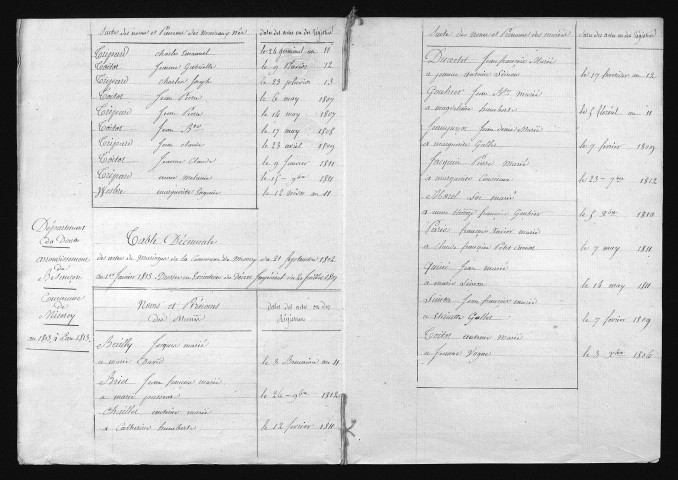 Suite des noms et Prénoms des Nouveaux Nés
Dates des actes ou des Registres
Trépard Charles Emanuel le 26 germinal an 11
Tortot Jeanne Gabrielle le 9 12
Trépard Charles Joseph le 23 13
Tortot Jean Pierre le 6 may 1807
Trépard Jean Pierre le 14 may 1807
Tortot Jean Bte le 17 may 1808
Trépard Jean Claude le 23 avril 1809
Tortot Jeanne Claude le 9 janvier 1811
Trépard anne melanie le 15 - 9bre 1811
marguerite le 12 an 11
Département
du Doubs
arrondissement
de
Besançon
Commune
de
an 1803 à l'an 1813.
Table Décennale
des actes de Mariages de la Commune de du 21 Septembre 1802
au 1er Janvier 1813. Dressée en Exécution du Décret Impérial du 20 Juillet 1807
Noms et Prénoms
des Mariés
Dates des actes ou des
Registres
Bailly Jacques marié
a marie David le 3 Brumaire an 11
Briot Jean françois marié
a marie le 26 - 9bre 1812
antoine marié
a Catherine humbert le 12 février 1811
Suite des noms et Prénoms des mariés
Dates des actes ou des Registres
Jean françois Marié
a jeanne antoine Simon le 17 fructidor an 12
Gauthier Jean Bte marié
a magdelaine humbert le 5 floréal an 11
Jean denis Marié
a marguerite Gallet le 7 février 1809
Jacquin Pierre marié
a marguerite le 23 - 7bre 1812
Morel marié
a anne françoise Gauthier le 5 Xbre 1810
françois Xavier marié
a Claude françoise Petit le 7 may 1811
Jean marié
a marie Simon le 14 may 1811
Simon Jean françois marié
a Gallet le 7 février 1809
Tortot antoine marié
a Jeanne le 3 Xbre 1806